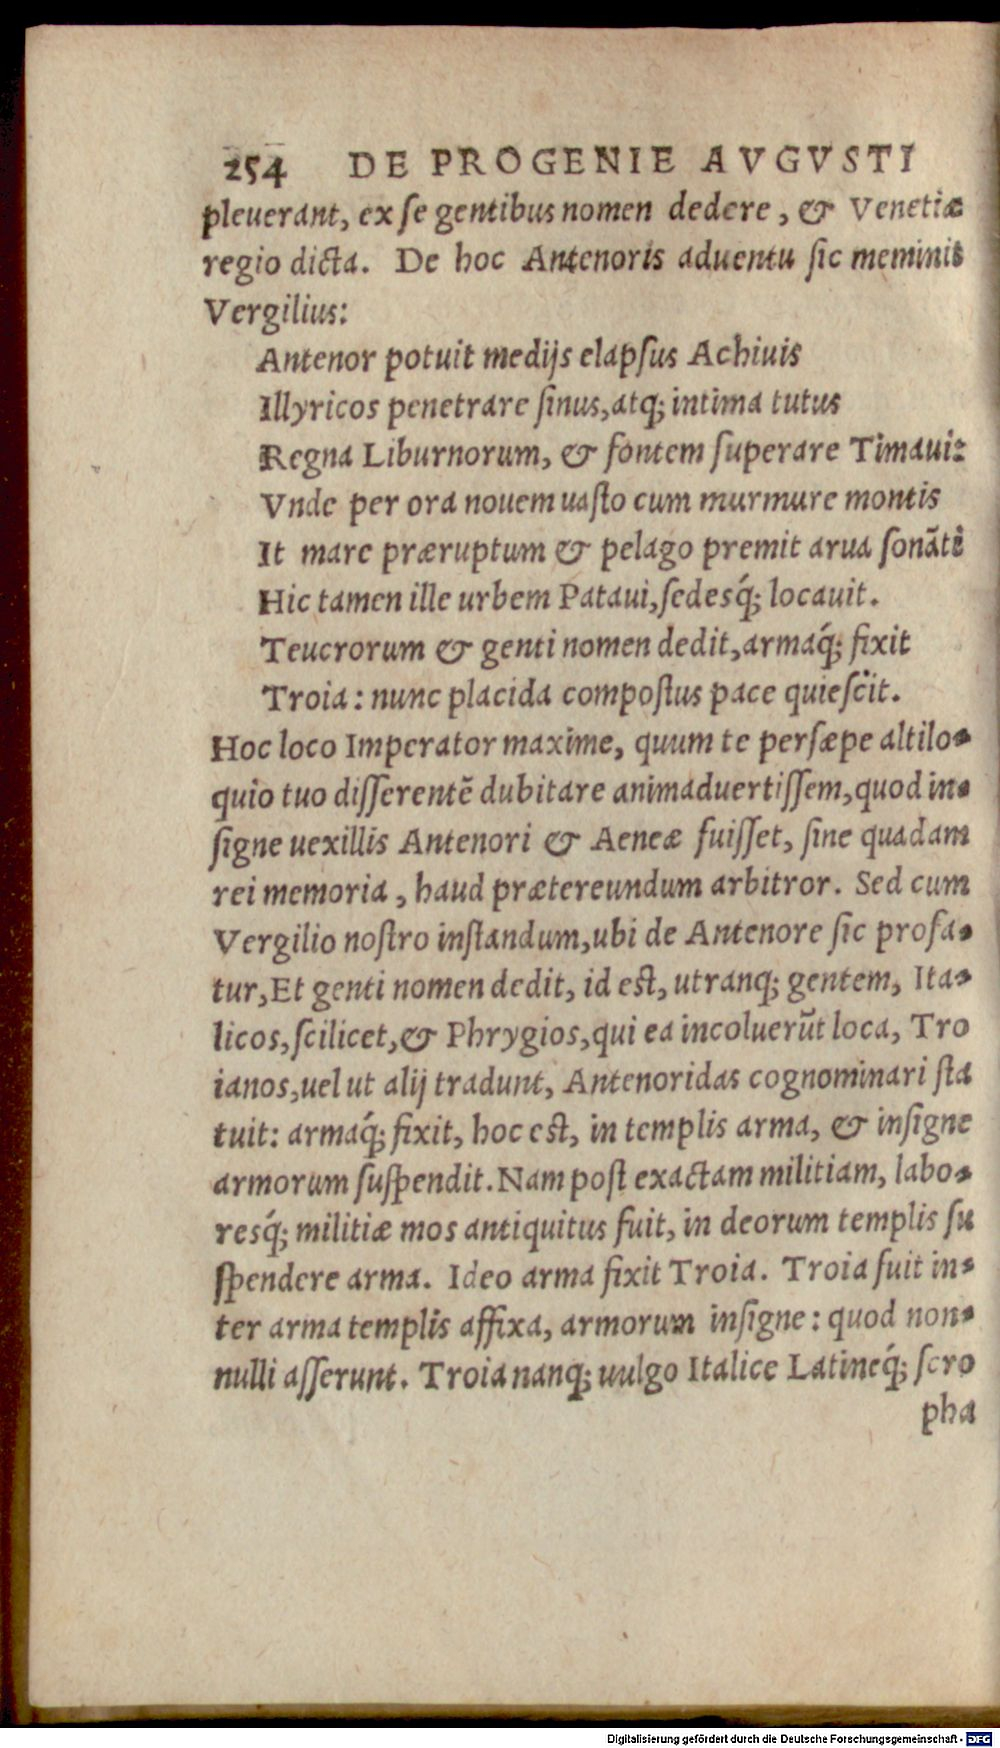 254 DE PROGENIE AVGVSTI
pleuerant, ex se gentibus nomen dedere, & Venetiæ
regio dicta. De hoc Antenoris aduentu sic meminit
Vergilius:
Antenor potuit medijs elapsus Achiuis
Illyricos penetrare sinus, atq; intima tutus
Regna Liburnorum, & fontem superare Timaui:
Vnde per ora nouem uasto cum murmure montis
It mare præruptum & pelago premit arua sonãti
Hic tamen ille urbem Pataui, sedesq́; locauit.
Teucrorum & genti nomen dedit, armaq́; fixit
Troia: nunc placida compostus pace quiescit.
Hoc loco Imperator maxime, quum te persæpe altilo-
quio tuo disserentẽ dubitare animaduertissem, quod in-
signe uexillis Antenori & Aeneæ fuisset, sine quadam
rei memoria, haud prætereundum arbitror. Sed cum
Vergilio nostro instandum, ubi de Antenore sic profa-
tur, Et genti nomen dedit, id est, utranq; gentem, Ita-
licos, scilicet, & Phrygios, qui ea incoluerũt loca, Tro
ianos, uel ut alij tradunt, Antenoridas cognominari sta
tuit: armaq́; fixit, hoc est, in templis arma, & insigne
armorum suspendit. Nam post exactam militiam, labo-
resq́; militiæ mos antiquitus fuit, in deorum templis su
spendere arma. Ideo arma fixit Troia. Troia fuit in-
ter arma templis affixa, armorum insigne: quod non-
nulli asserunt. Troia nanq; uulgo Italice Latineq́; scro
pha
Digitalisierung gefördert durch die Deutsche Forschungsgemeinschaft - DFG